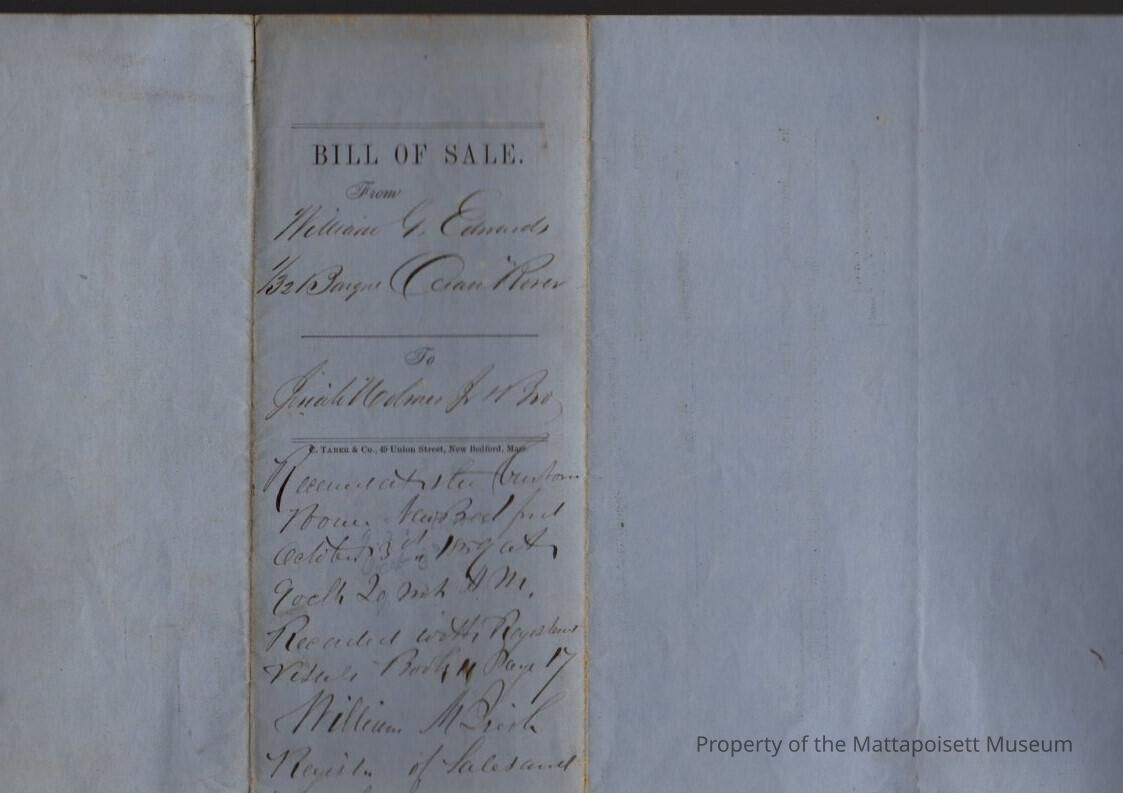 BILL OF SALE.
From
William G. Edwards
1/32 Barque Ocean Rover
To
Josiah Holmes Jr & Bro
C. TABER & Co., 49 Union Street, New Bedford, Mass.
Received at the Custom
House New Bedford
October 3d 1859 at
9 oclk 20 mts A.M.
Recorded with Registered
Vessels Book 11 Page 17
William
Register of Sales and
Property of the Mattapoisett Museum